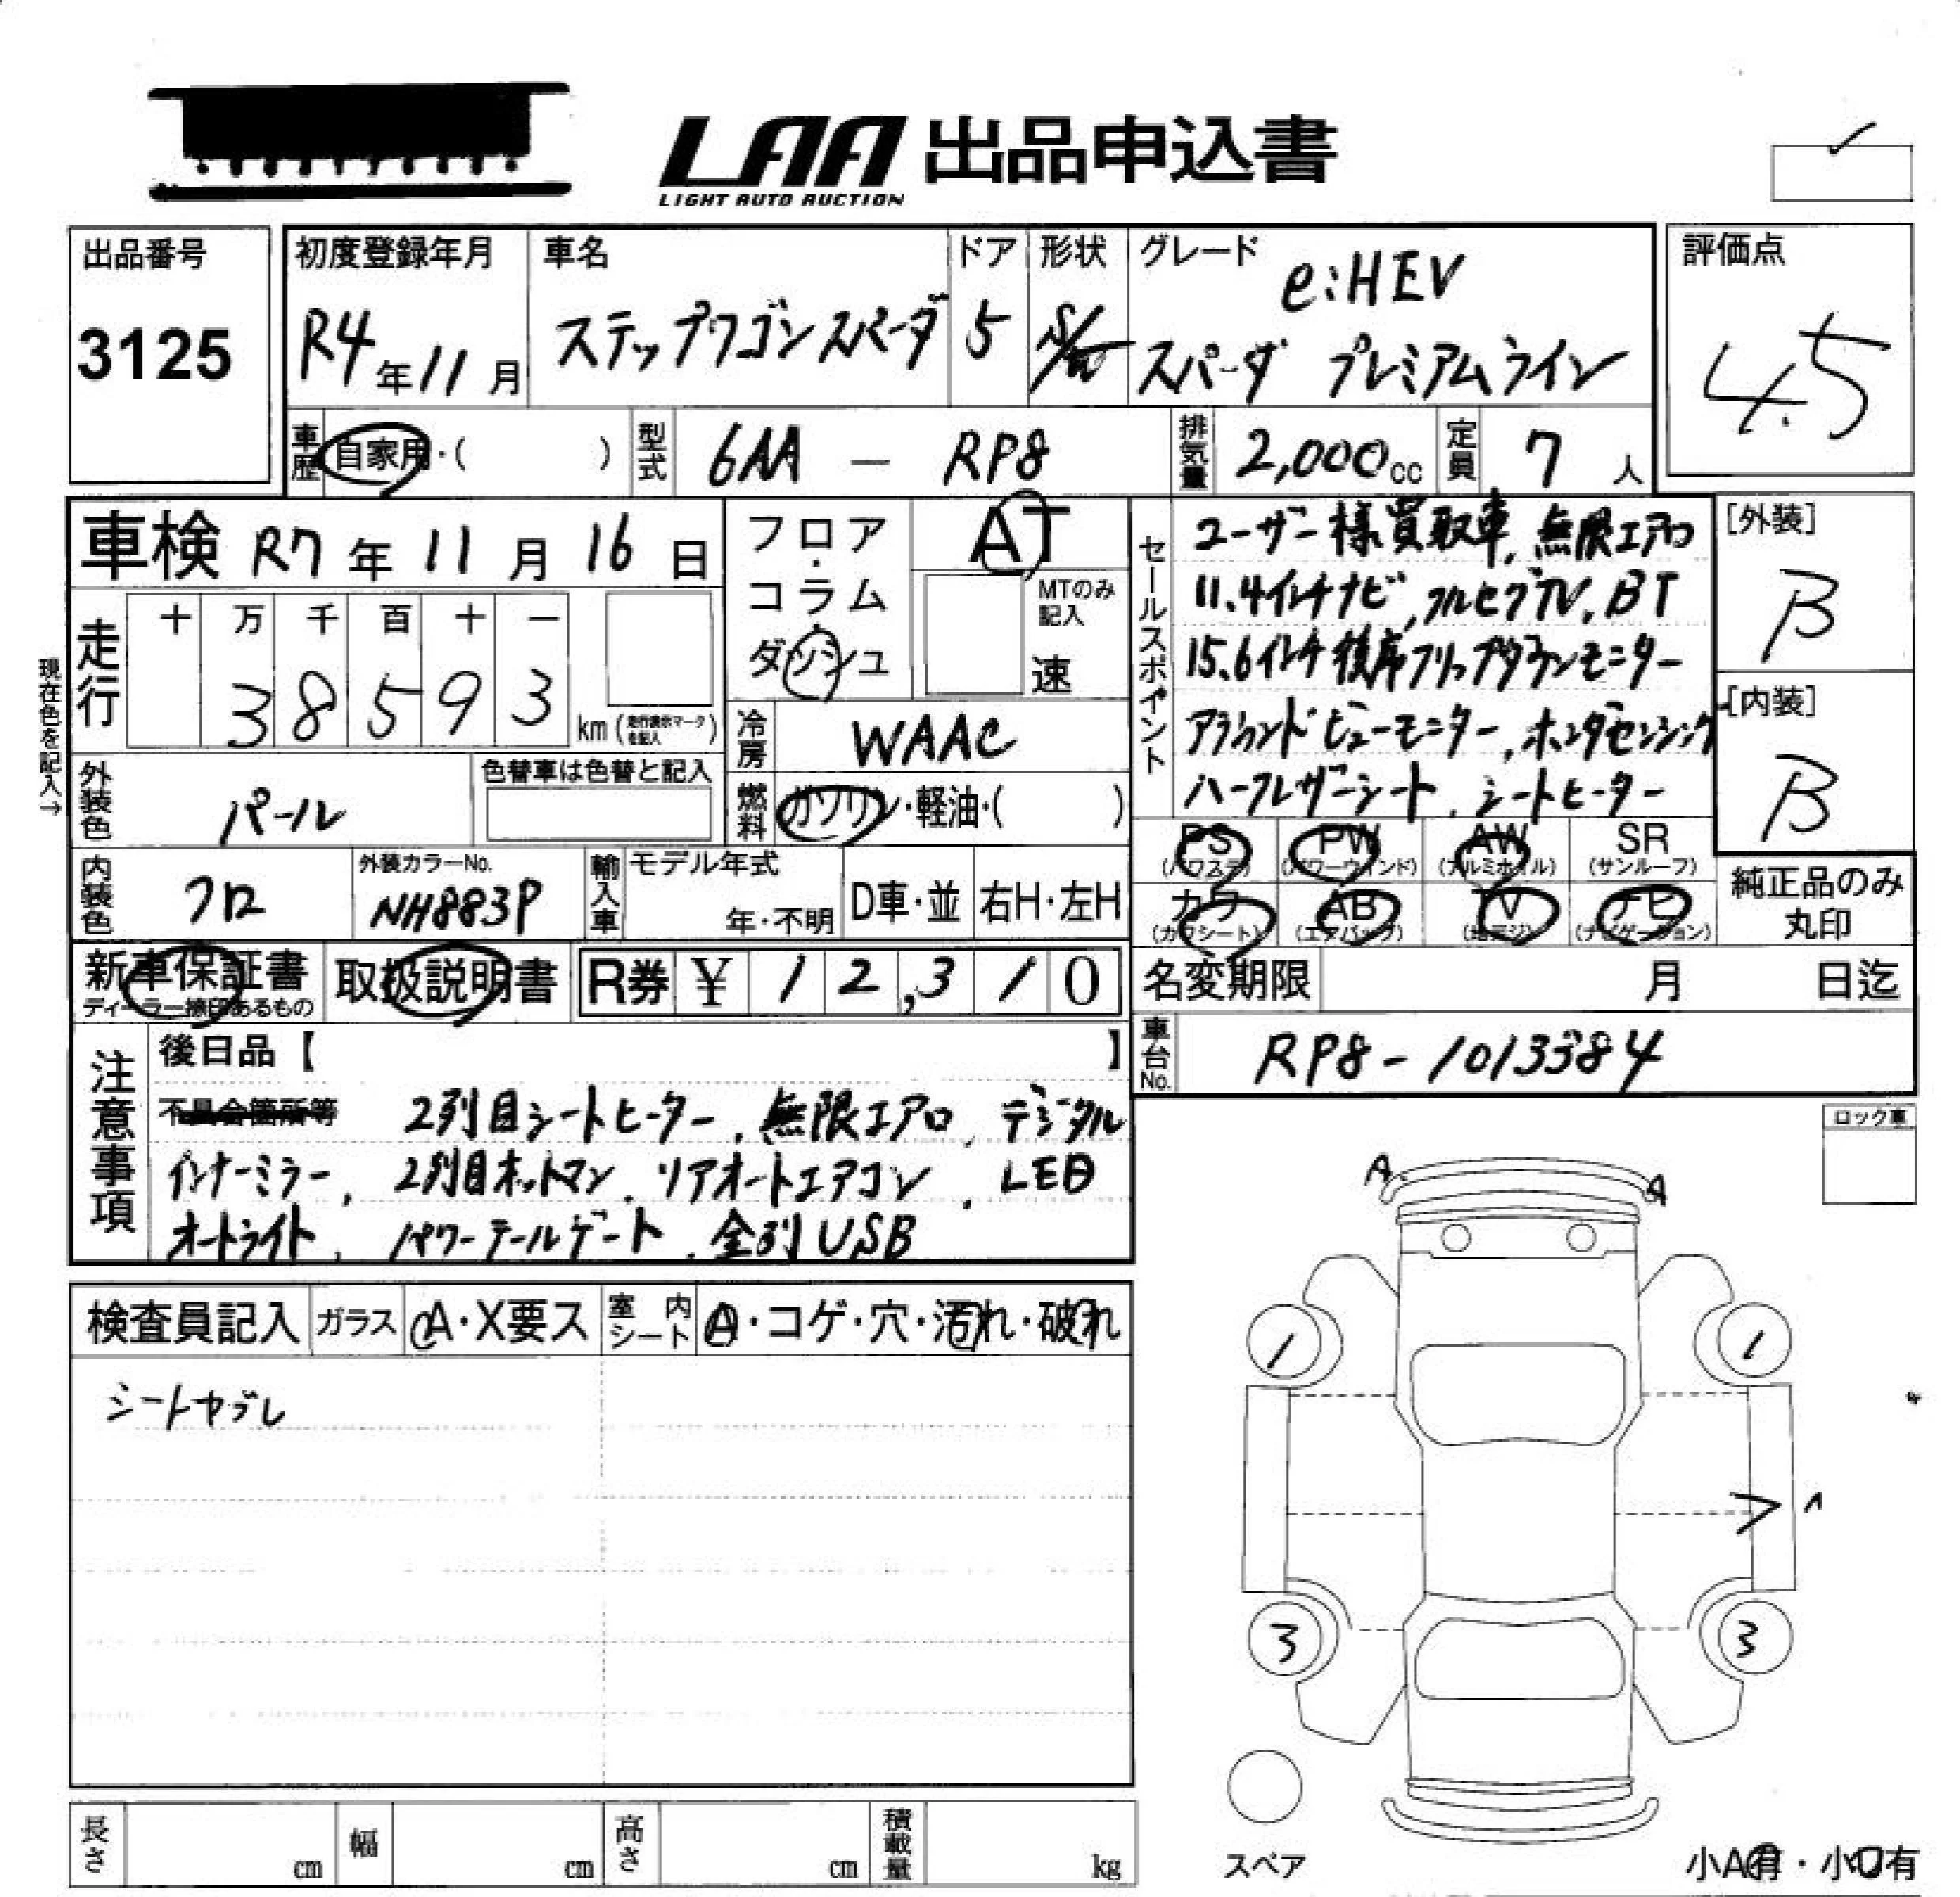 LAA 出品申込書
LIGHT AUTO AUCTION
出品番号
3125
初度登録年月
R4年11月
車名
ステップワゴンスパーダ
ドア
5
形状
S/W
グレード
e:HEV
スパーダ プレミアムライン
評価点
4.5
車歴 自家用・( )
型式 6AA - RP8
排気量 2,000cc
定員 7人
車検 R7年11月16日
フロア・コラム・ダッシュ
AT
MTのみ記入
速
現在色を記入→
走行
十 万 千 百 十 一
3 8 5 9 3
km(走行表示マークを記入)
冷房 WAAC
燃料 ガソリン・軽油・( )
外装色 パール
色替車は色替と記入
内装色 クロ
外装カラーNo.
NH883P
輸入車
モデル年式
年・不明
D車・並
右H・左H
セールスポイント
ユーザー様買取車, 無限エアロ
11.4インチナビ, フルセグTV, BT
15.6インチ後席フリップダウンモニター
アラウンドビューモニター, ホンダセンシング
ハーフレザーシート, シートヒーター
[外装]
B
[内装]
B
PS (パワステ)
PW (パワーウインド)
AW (アルミホイル)
SR (サンルーフ)
カワ (カワシート)
AB (エアバック)
TV (地デジ)
ナビ (ナビゲーション)
純正品のみ丸印
新車保証書
ディーラー捺印あるもの
取扱説明書
R券 ¥ 12,310
名変期限 月 日迄
車台No. RP8-1013384
注意事項
後日品【 】
不具合箇所等 2列目シートヒーター, 無限エアロ, デジタル
インナーミラー, 2列目オットマン, リアオートエアコン, LED
オートライト, パワーテールゲート, 全列USB
ロック車
A A
検査員記入
ガラス A・X要ス
室内シート A・コゲ・穴・汚れ・破れ
シートヤブレ
1 1
3 3
スペア
長さ cm
幅 cm
高さ cm
積載量 kg
小A有・小凹有